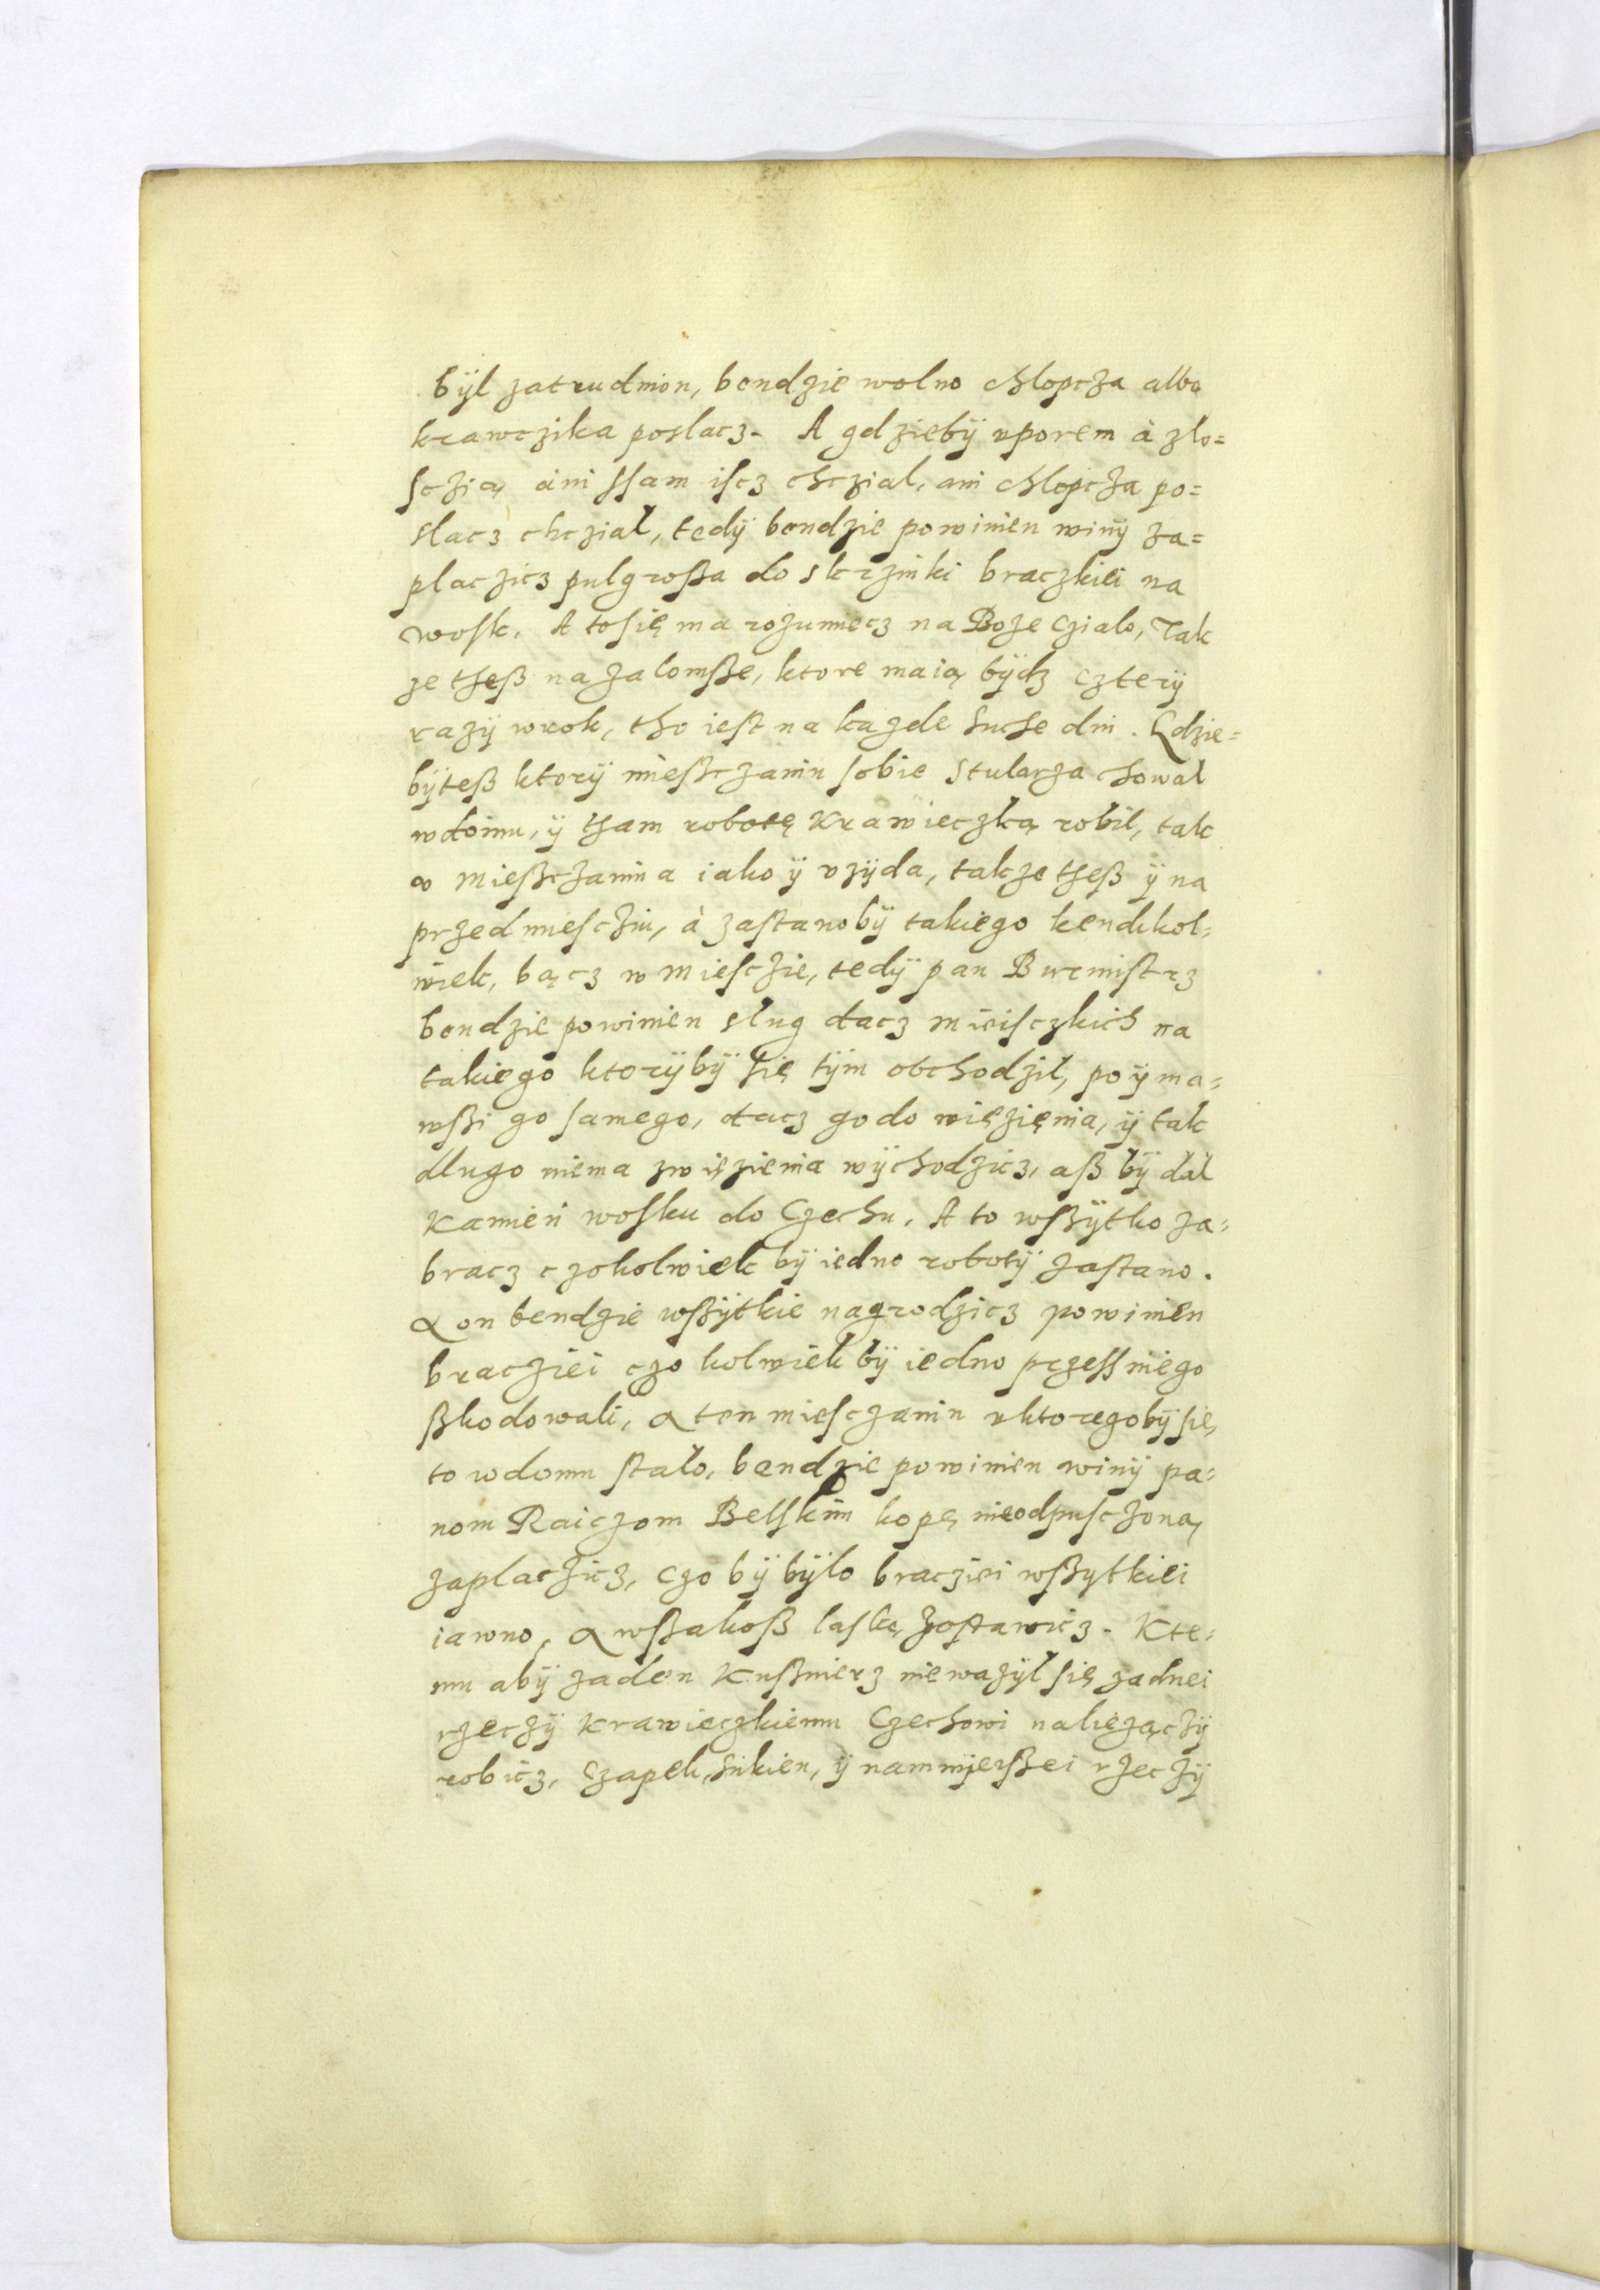 bÿl zatrudnion, bendzie wolno chlopcza albo
krawczika poslacz. A gdziebÿ vporem à zlo=
sczią ani ssam iscz chczial, ani chlopcza po=
slacz chczial, tedÿ bendzie powinien winÿ za=
placzicz pulgroßa do skrzinki braczkiei na
wosk. A tosię ma rozumiecz na Boże Czialo, Tak
ze theß na zalomße, ktore maią bÿdz czterÿ
razÿ wrok, tho iest na każde Suche dni. Gdzie=
bÿteß ktorÿ mießczanin sobie Stularza chowal
wdomu, ÿ tham robotę Krawieczką robil, tak
v Mießczanina iako ÿ vzÿda, takze theß ÿ na
przedmiesczіu, à zastanobÿ takiego kendikol=
wiek, bącz w Miesczie, tedÿ pan Burmistrz
bendzie powinien slug dacz Mieisczkich na
takiego ktorÿbÿ się tÿm obchodzil, poÿma=
wßi go samego, dacz godo więzięnia, ÿ tak
dlugo niema zwięzienia wÿchodzicz, aß bÿ dal
Kamien wosku do Czechu. A to wßÿtko za=
bracz czokolwiek bÿ iedno robotÿ zastano.
A on bendzie wßÿtkie nagrodzicz powinien
bracziei czo kolwiek bÿ iedno przess niego
ßkodowali, A ten miesczanin vktoregobÿ się
to wdomu stalo, bendzie powinien winÿ pa=
nom Raiczom Belskim kopę nieodpusczoną
zaplaczicz, czo bÿ bÿlo bracziei wßÿtkiei
iawno, A wßakoß laskę zostawicz. Kte=
mu abÿ zaden Kußnierz nie wazÿl się zadnei
rzeczÿ Krawieczkiemu Czechowi należączÿ
robicz, Czapek, Sukien, ÿ namnÿeißei rzeczÿ